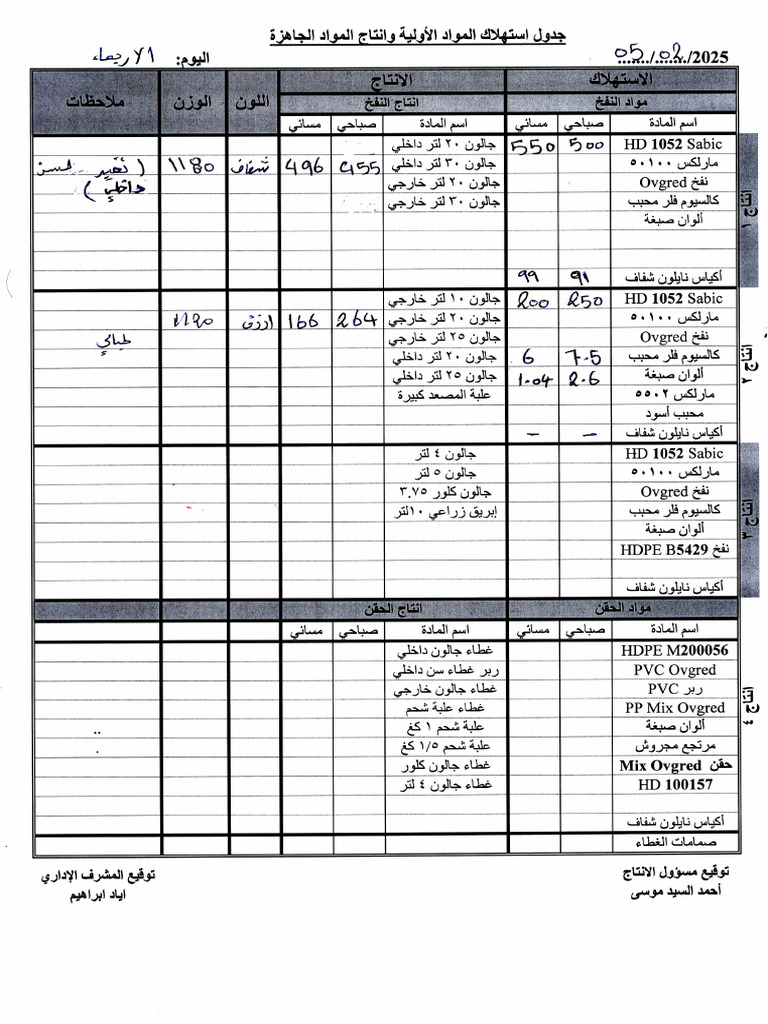 جدول استهلاك المواد الأولية وانتاج المواد الجاهزة
اليوم: الاربعاء 05/02/2025
الاستهلاك الانتاج اللون الوزن ملاحظات
مواد النفخ انتاج النفخ
اسم المادة صباحي مسائي اسم المادة صباحي مسائي
انتاج ١
HD 1052 Sabic 500 550 جالون ٢٠ لتر داخلي
مارلكس ٥٠١٠٠ جالون ٣٠ لتر داخلي 455 496 شفاف 1180 (تغير
نفخ Ovgred جالون ٢٠ لتر خارجي داخلي)
كالسيوم فلر محبب جالون ٣٠ لتر خارجي
ألوان صبغة
أكياس نايلون شفاف 91 99
انتاج ٢
HD 1052 Sabic 250 200 جالون ١٠ لتر خارجي
مارلكس ٥٠١٠٠ جالون ٢٠ لتر خارجي 264 166 ازرق 1190
نفخ Ovgred جالون ٢٥ لتر خارجي
كالسيوم فلر محبب 7.5 6 جالون ٢٠ لتر داخلي
ألوان صبغة 2.6 1.04 جالون ٢٥ لتر داخلي
مارلكس ٥٥٠٢ علبة المصعد كبيرة
محبب أسود
أكياس نايلون شفاف – –
انتاج ٣
HD 1052 Sabic جالون ٤ لتر
مارلكس ٥٠١٠٠ جالون ٥ لتر
نفخ Ovgred جالون كلور ٣.٧٥
كالسيوم فلر محبب إبريق زراعي ١٠لتر
ألوان صبغة
نفخ HDPE B5429
أكياس نايلون شفاف
مواد الحقن انتاج الحقن
اسم المادة صباحي مسائي اسم المادة صباحي مسائي
انتاج ٤
HDPE M200056 غطاء جالون داخلي
PVC Ovgred ربر غطاء سن داخلي
ربر PVC غطاء جالون خارجي
PP Mix Ovgred غطاء علبة شحم
ألوان صبغة علبة شحم ١ كغ
مرتجع مجروش علبة شحم ١/٥ كغ
حقن Mix Ovgred غطاء جالون كلور
HD 100157 غطاء جالون ٤ لتر
أكياس نايلون شفاف
صمامات الغطاء
توقيع مسؤول الانتاج توقيع المشرف الإداري
أحمد السيد موسى اياد ابراهيم